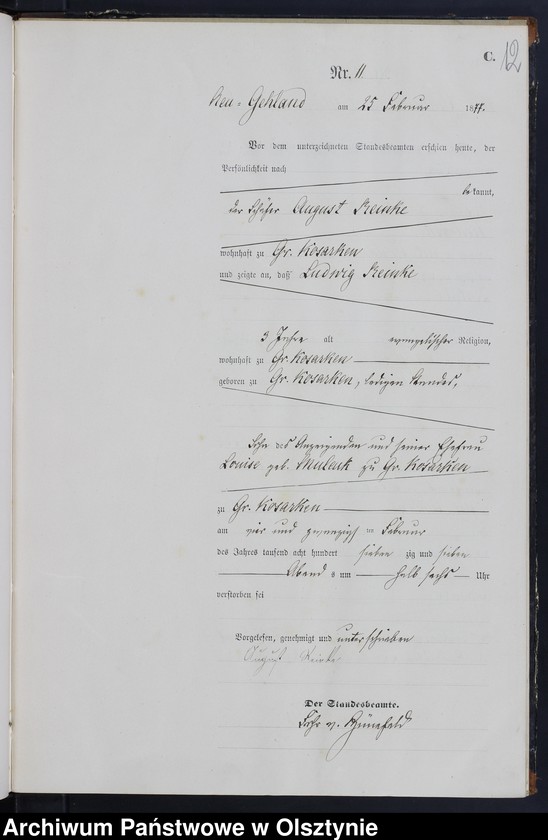 C. 12
Nr. 11
Neu-Gehland am 25 Februar 1877.
Vor dem unterzeichneten Standesbeamten erschien heute, der
Persönlichkeit nach
bekannt,
der Schäfer August Reinke
wohnhaft zu Gr. Kosarken
und zeigte an, daß Ludwig Reinke
3 Jahre alt evangelischer Religion,
wohnhaft zu Gr. Kosarken
geboren zu Gr. Kosarken, ledigen Standes,
Sohn des Anzeigenden und seiner Ehefrau
Louise geb. zu Gr. Kosarken
zu Gr. Kosarken
am vier und zwanzigsten Februar
des Jahres tausend acht hundert siebenzig und sieben
Abends um halb sechs Uhr
verstorben sei
Vorgelesen, genehmigt und unterschrieben
August Reinke
Der Standesbeamte.
Frhr v.
Archiwum Państwowe w Olsztynie